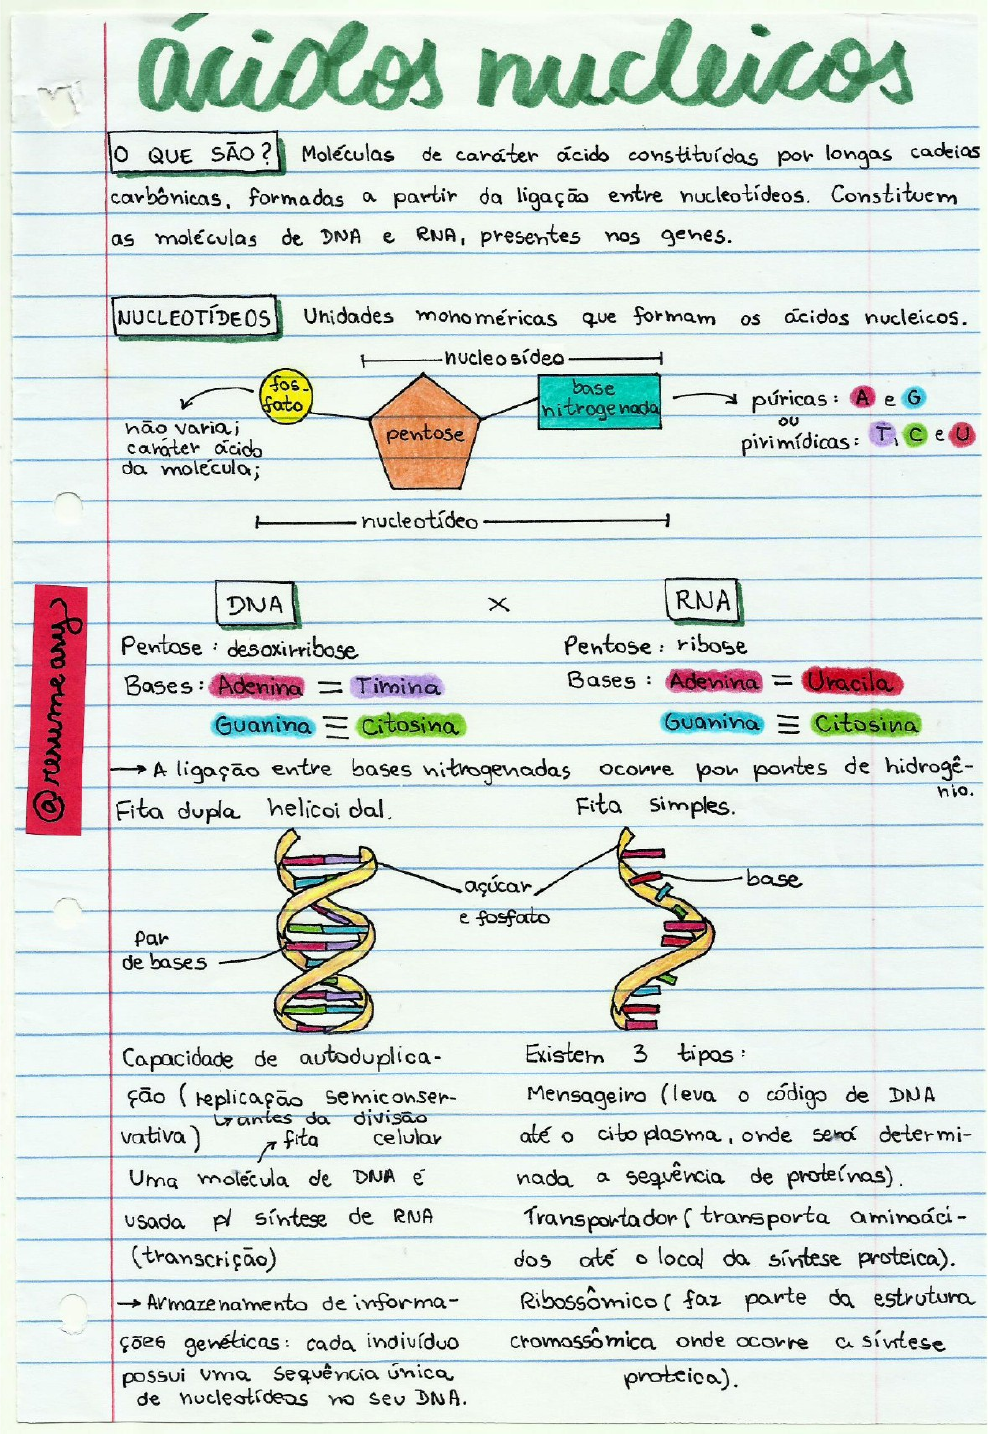 ácidos nucleicos
O QUE SÃO? Moléculas de caráter ácido constituídas por longas cadeias
carbônicas, formadas a partir da ligação entre nucleotídeos. Constituem
as moléculas de DNA e RNA, presentes nos genes.
NUCLEOTÍDEOS Unidades monoméricas que formam os ácidos nucleicos.
nucleosídeo
fos-
fato
pentose
base
nitrogenada
não varia;
caráter ácido
da molécula;
púricas: A e G
ou
pirimídicas: T, C e U
nucleotídeo
@resumeany
DNA X RNA
Pentose: desoxirribose
Bases: Adenina = Timina
Guanina ≡ Citosina
Pentose: ribose
Bases: Adenina = Uracila
Guanina ≡ Citosina
→ A ligação entre bases nitrogenadas ocorre por pontes de hidrogê-
nio.
Fita dupla helicoidal.
Fita simples.
açúcar
e fosfato
base
Par
de bases
Capacidade de autoduplica-
ção (replicação semiconser-
vativa) antes da divisão
celular
fita
Uma molécula de DNA é
usada p/ síntese de RNA
(transcrição)
→ Armazenamento de informa-
ções genéticas: cada indivíduo
possui uma sequência única
de nucleotídeos no seu DNA.
Existem 3 tipos:
Mensageiro (leva o código de DNA
até o citoplasma, onde será determi-
nada a sequência de proteínas).
Transportador (transporta aminoáci-
dos até o local da síntese proteica).
Ribossômico (faz parte da estrutura
cromossômica onde ocorre a síntese
proteica).